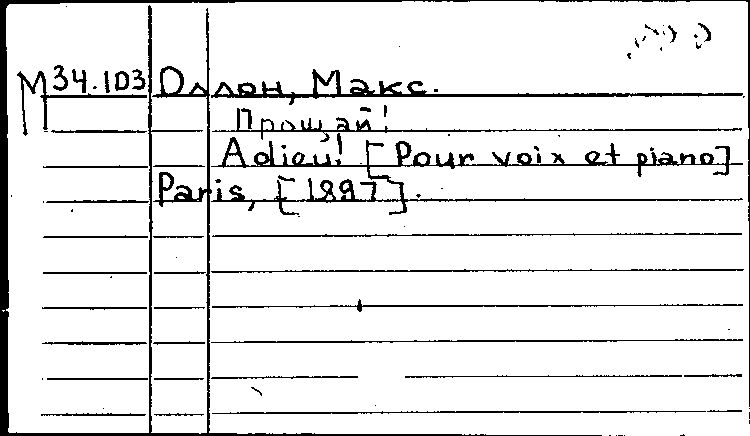 М 34.103 Оллон, Макс.
Прощай!
Adieu! [Pour voix et piano]
Paris, [1897].